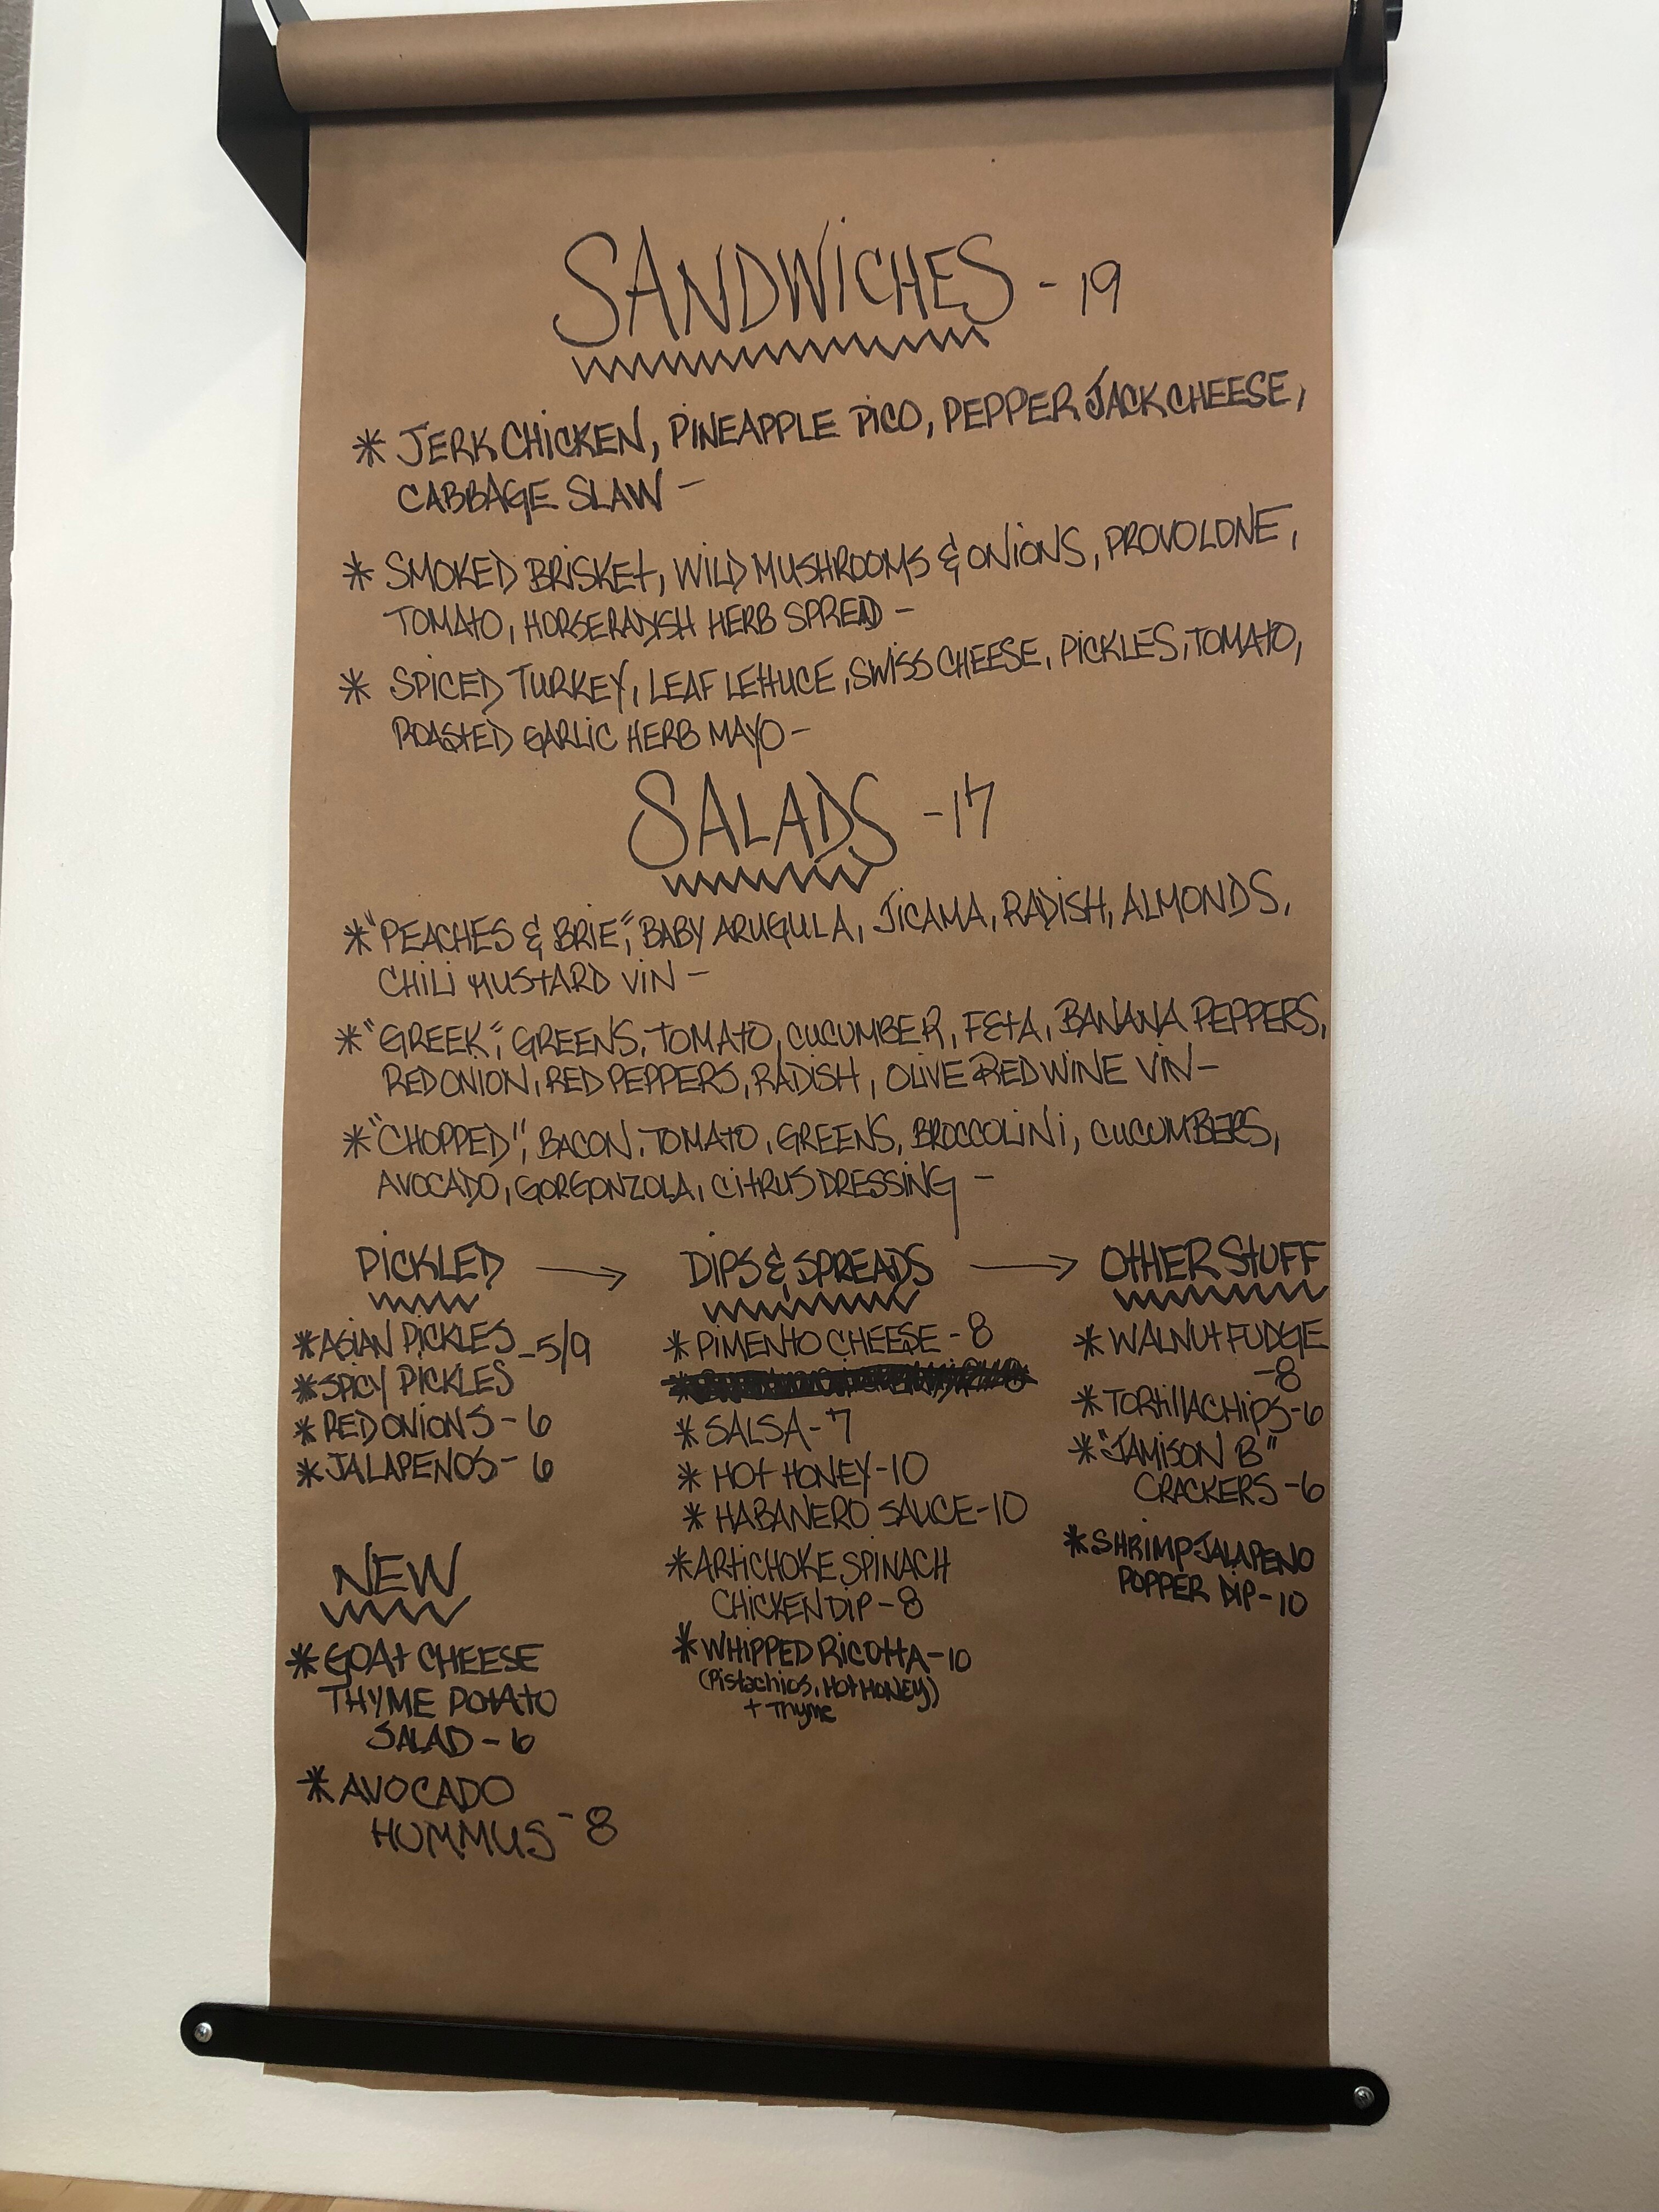 SANDWICHES - 19
* JERK CHICKEN, PINEAPPLE PICO, PEPPER JACK CHEESE,
CABBAGE SLAW -
* SMOKED BRISKET, WILD MUSHROOMS & ONIONS, PROVOLONE,
TOMATO, HORSERADISH HERB SPREAD -
* SPICED TURKEY, LEAF LETTUCE, SWISS CHEESE, PICKLES, TOMATO,
ROASTED GARLIC HERB MAYO -
SALADS - 17
* "PEACHES & BRIE", BABY ARUGULA, JICAMA, RADISH, ALMONDS,
CHILI MUSTARD VIN -
* "GREEK", GREENS, TOMATO, CUCUMBER, FETA, BANANA PEPPERS,
RED ONION, RED PEPPERS, RADISH, OLIVE RED WINE VIN -
* "CHOPPED", BACON, TOMATO, GREENS, BROCCOLINI, CUCUMBERS,
AVOCADO, GORGONZOLA, CITRUS DRESSING -
PICKLED →
* ASIAN PICKLES - 5/9
* SPICY PICKLES
* RED ONIONS - 6
* JALAPENOS - 6
NEW
* GOAT CHEESE
THYME POTATO
SALAD - 6
* AVOCADO
HUMMUS - 8
DIPS & SPREADS →
* PIMENTO CHEESE - 8
* SALSA - 7
* HOT HONEY - 10
* HABANERO SAUCE - 10
* ARTICHOKE SPINACH
CHICKEN DIP - 8
* WHIPPED RICOTTA - 10
(Pistachios, HOT HONEY)
+ Thyme
OTHER STUFF
* WALNUT FUDGE
- 8
* TORTILLA CHIPS - 6
* "JAMISON B"
CRACKERS - 6
* SHRIMP JALAPENO
POPPER DIP - 10